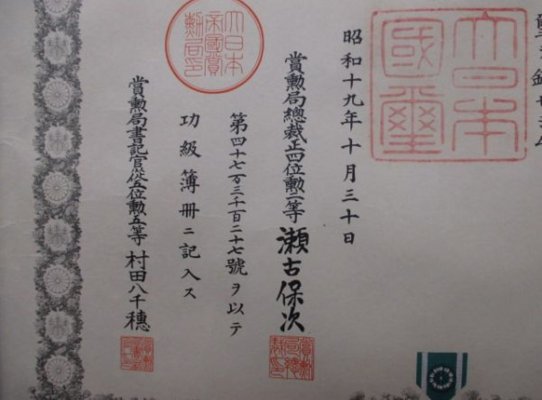 大日本
國璽
昭和十九年十月三十日
賞勲局總裁正四位勲一等瀬古保次
第四十七万三千百二十七號ヲ以テ
功級簿册ニ記入ス
大日本
帝國賞
勲局印
賞勲局書記官從五位勲五等村田八千穗